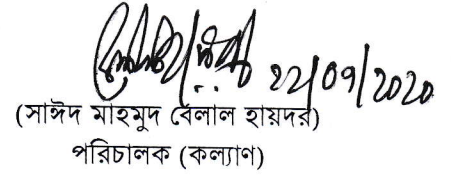 ২২/০৭/২০২০
(সাঈদ মাহমুদ বেলাল হায়দর)
পরিচালক (কল্যাণ)